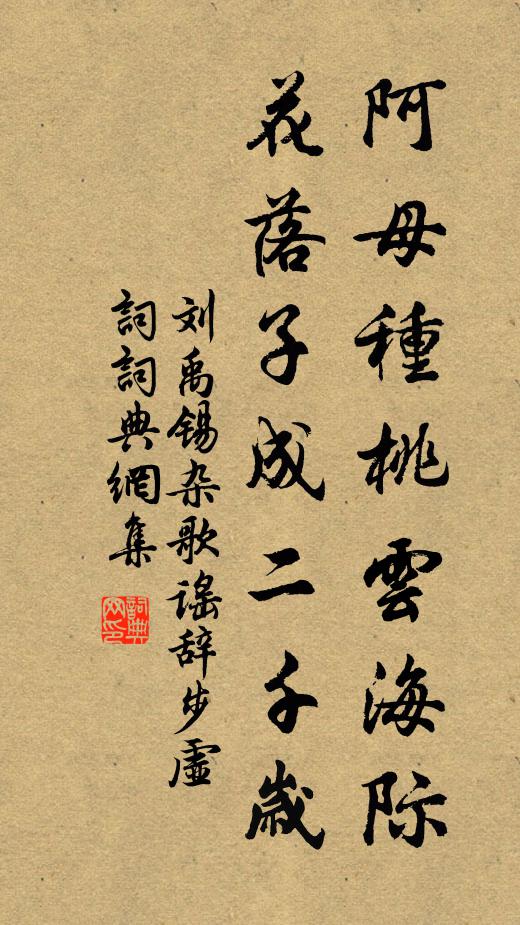 阿母種桃雲海际
花落子成二千歲
刘禹锡杂歌谣辞步虚
詞詞典網集
詞典
网印